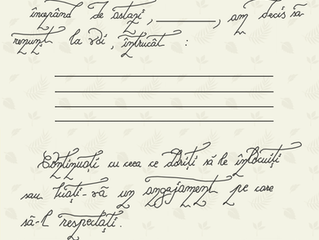 începând de astăzi, ________, am decis să
renunț la voi, întrucât :
Continuați cu ceea ce doriți să le înlocuiți
sau luați-vă un angajament pe care
să-l respectați.